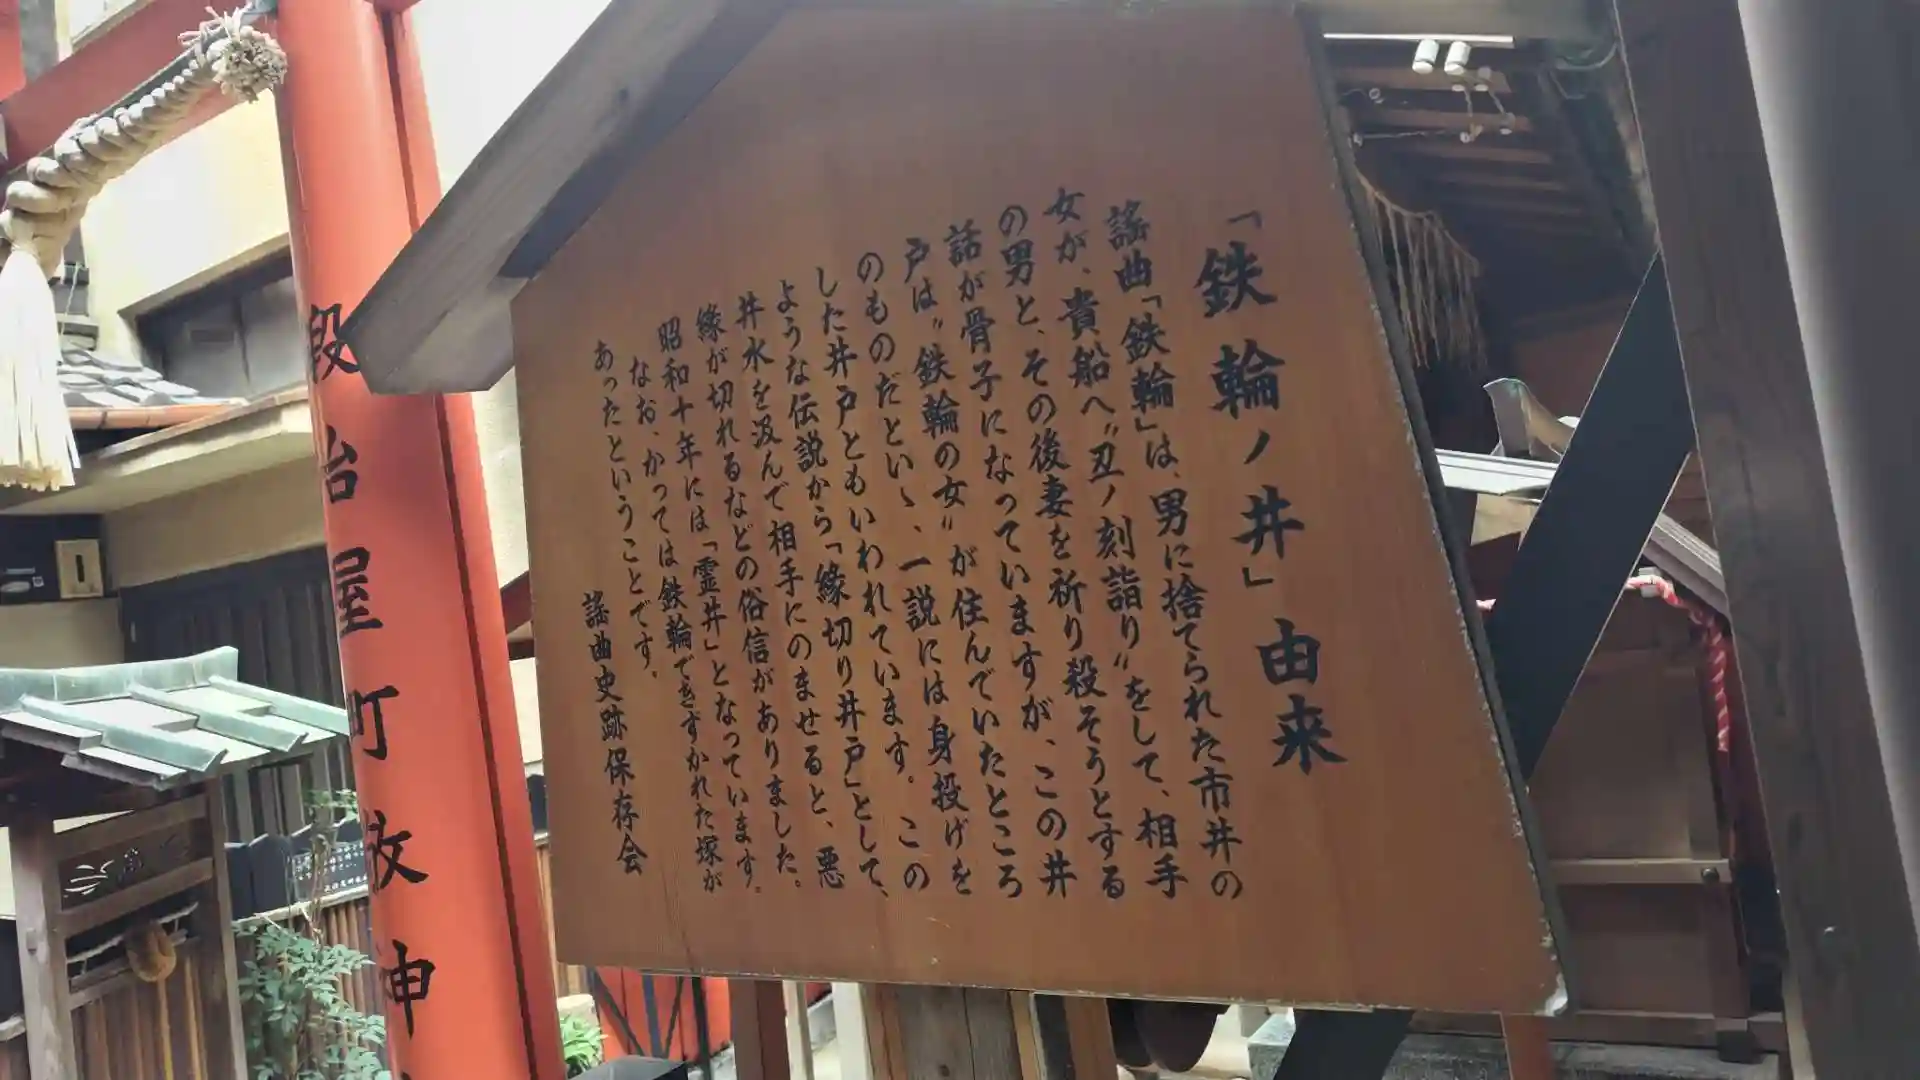 「鉄輪ノ井」由来
謡曲「鉄輪」は、男に捨てられた市井の
女が、貴船へ〝丑ノ刻詣り〟をして、相手
の男と、その後妻を祈り殺そうとする
話が骨子になっていますが、この井
戸は〝鉄輪の女〟が住んでいたところ
のものだといゝ、一説には身投げを
した井戸ともいわれています。この
ような伝説から「縁切り井戸」として、
井水を汲んで相手にのませると、悪
縁が切れるなどの俗信がありました。
昭和十年には「霊井」となっています。
なお、かっては鉄輪できずかれた塚が
あったということです。
謡曲史跡保存会
段冶屋町敀神